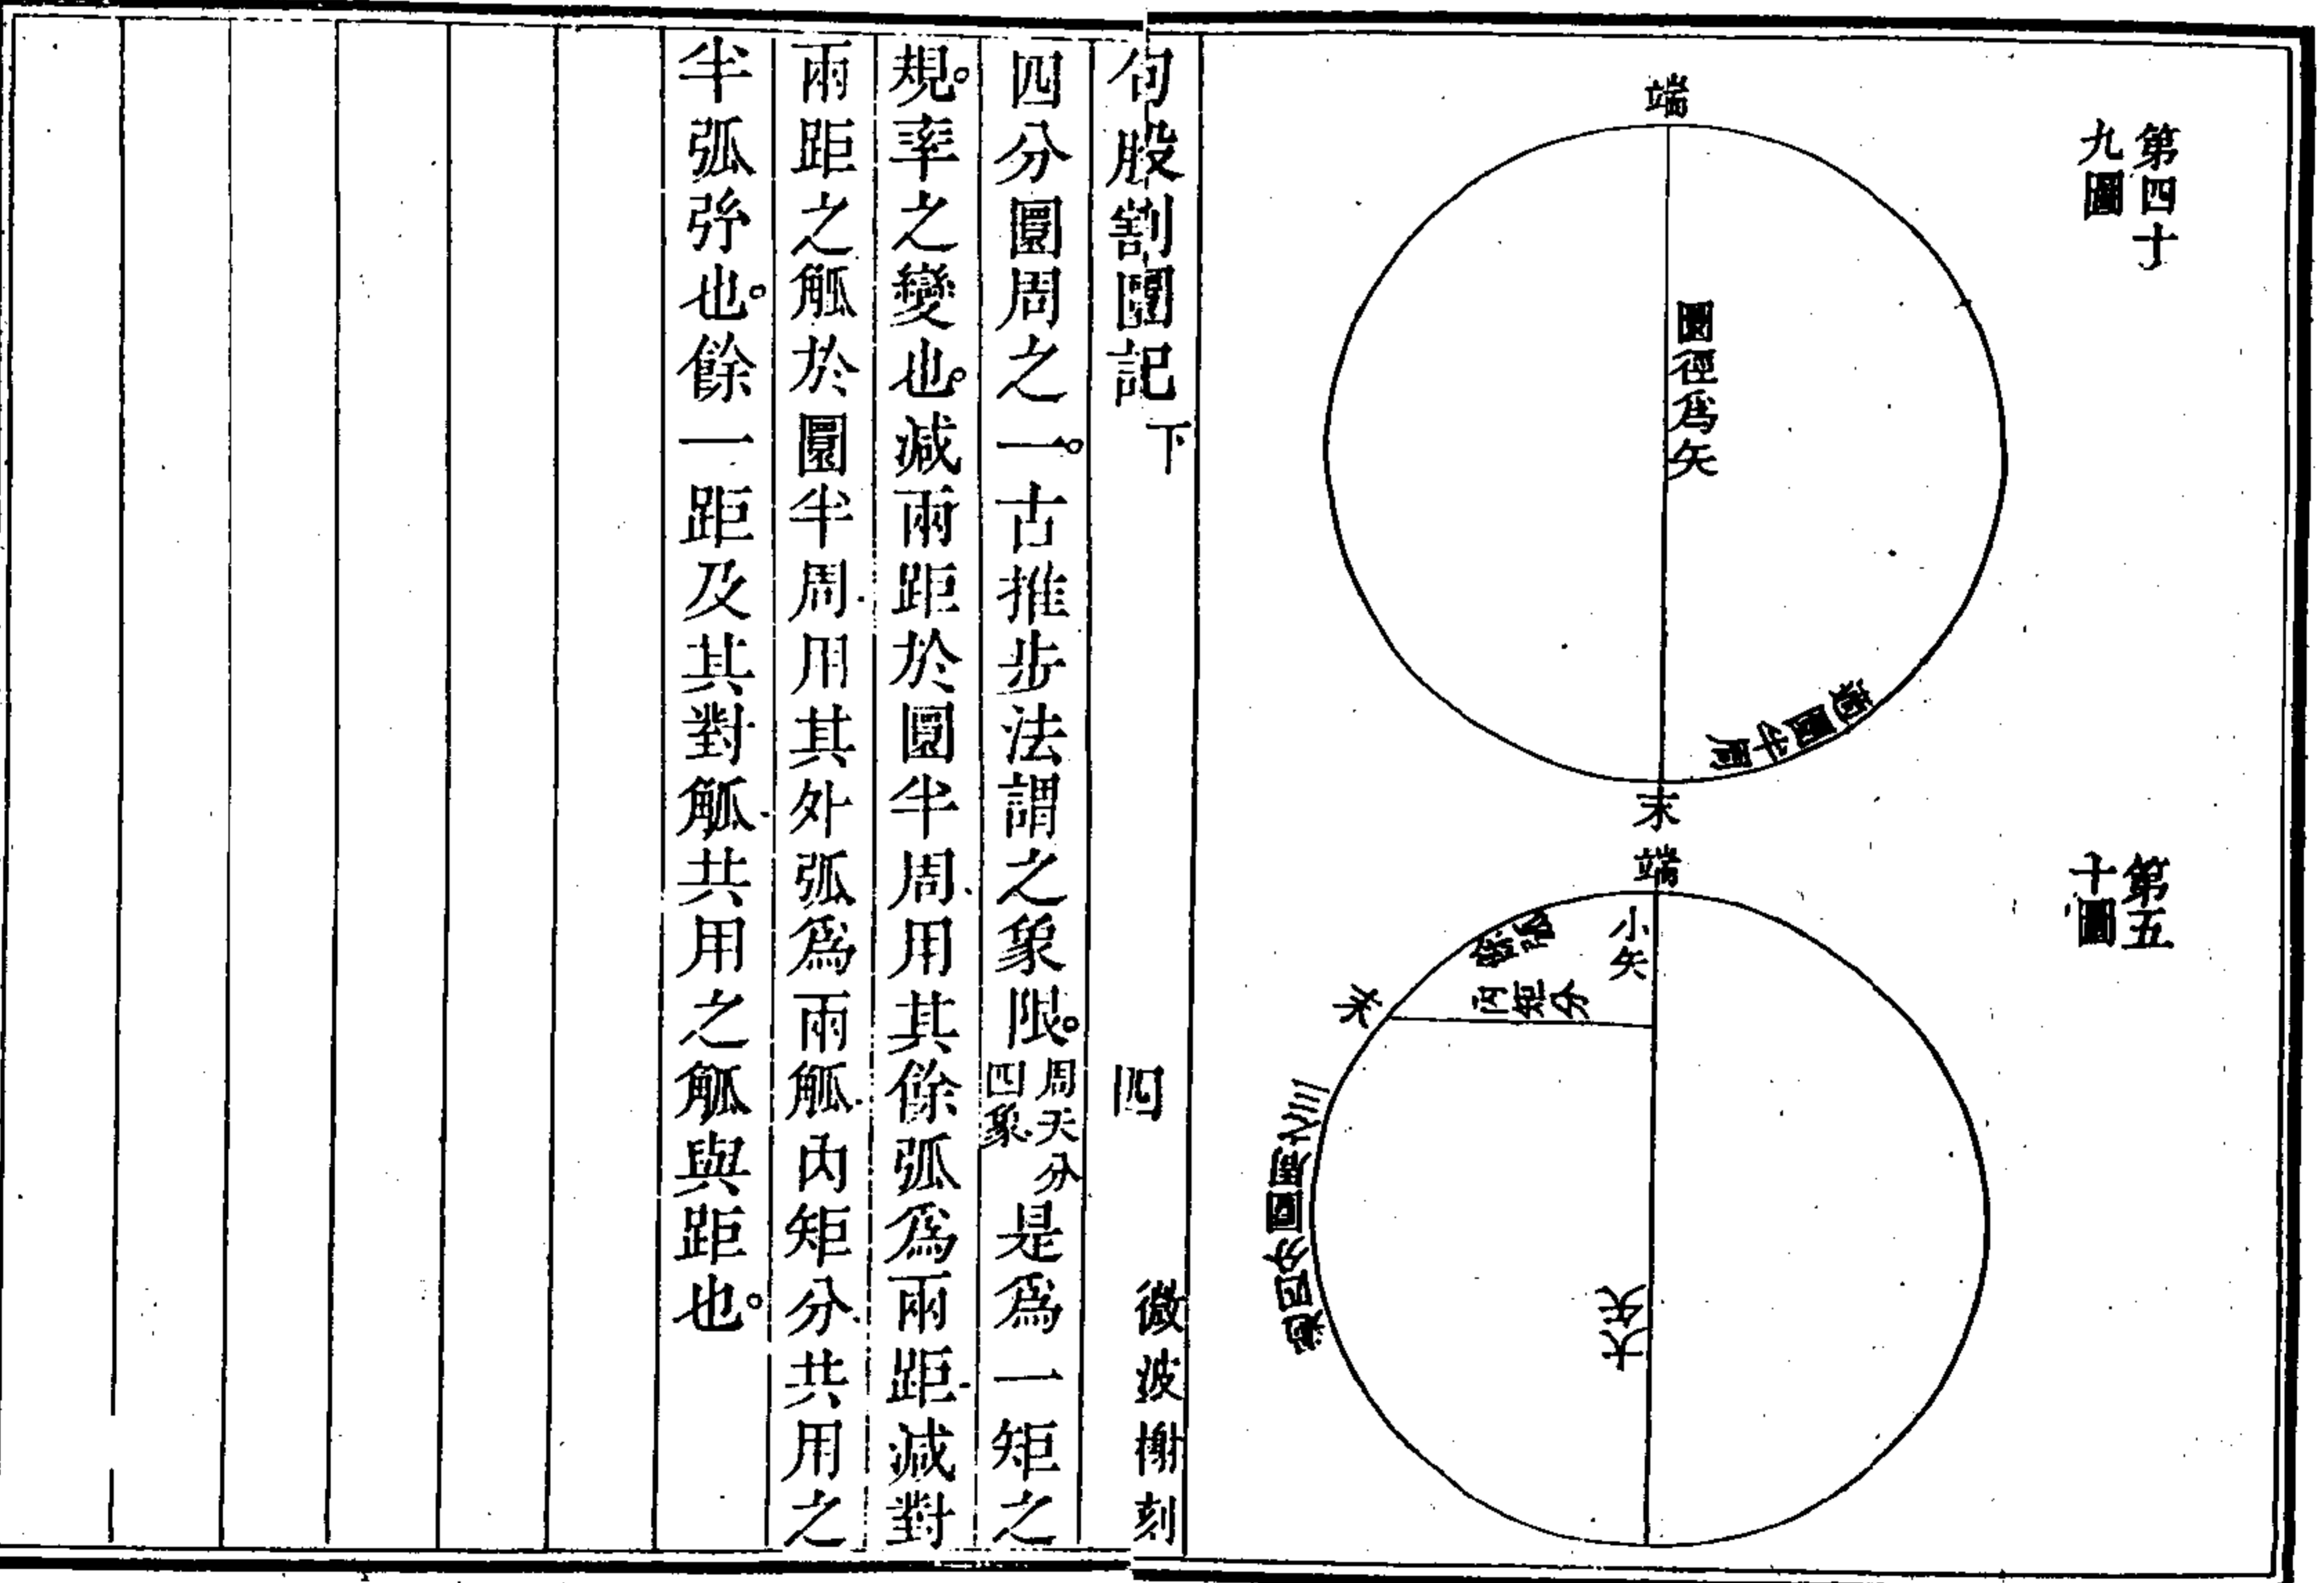 第四十
九圖
端
圜徑爲矢
過圜半周
末
第五
十圖
端
小矢
餘弧
內矩分
末
過四分圜周之三
大矢
句股割圜記下 四 微波榭刻
四分圜周之一。古推步法謂之象限。周天分四象是爲一矩之
規。率之變也。減兩距於圜半周用其餘弧爲兩距減對
兩距之觚於圜半周用其外弧爲兩觚內矩分共用之
半弧弮也。餘一距及其對觚共用之觚與距也。